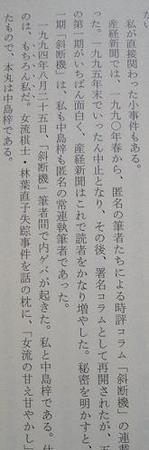 私が直接関わった小事件もある。
産経新聞では、一九九〇年春から、匿名の筆者たちによる時評コラム「斜断機」の連載
った。一九九五年末でいったん中止となり、その後、署名コラムとして再開されたが、
の第一期がいちばん面白く、産経新聞はこれで読者をかなり増やした。秘密を明かすと、
一期「斜断機」は、私も中島梓も匿名の常連執筆者であった。
一九九四年八月二十五日、「斜断機」筆者間で内ゲバが起きた。私と中島梓である。
のは、もちろん私だ。女流棋士・林葉直子失踪事件を話の枕に、「女流の甘え甘やかし」
たもので、本丸は中島梓である。